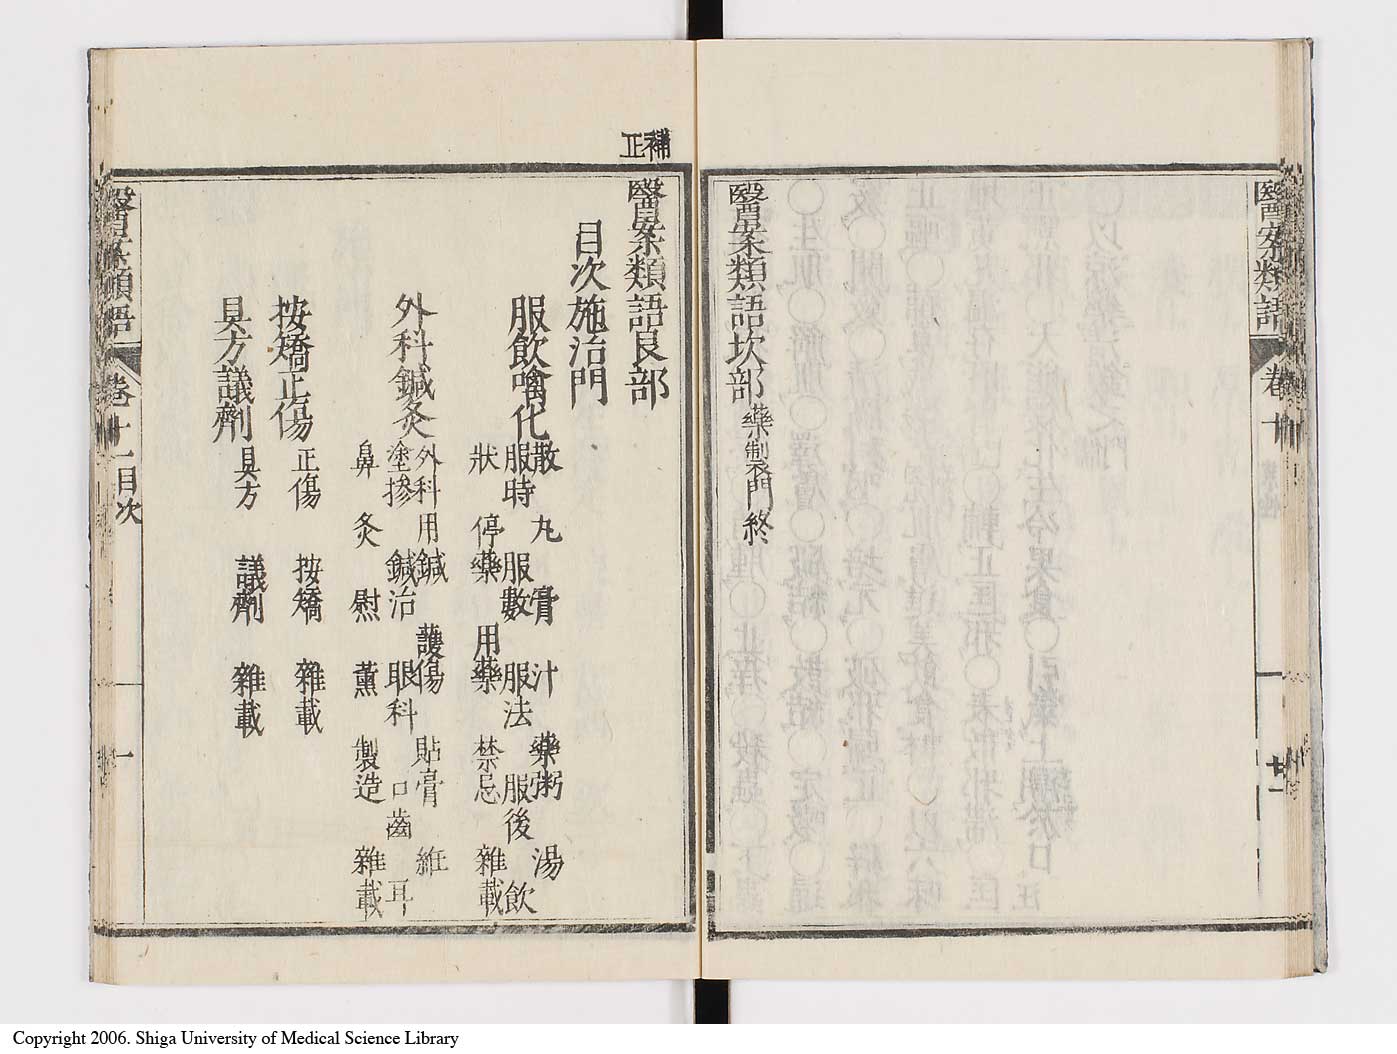 醫案類語
卷十
廿一
醫案類語坎部藥製門終
補正
醫案類語艮部
目次施治門
服飲噙化
散 丸 膏 汁 藥粥 湯
服時 服數 服法 服後 飲
狀 停藥 用藥 禁忌 雜載
外科鍼灸
外科 用鍼 護傷 貼膏 紝
塗摻 鍼治 眼科 口齒 耳
鼻 灸 慰 薰 製造 雜載
按矯正傷
正傷 按矯 雜載
具方議劑
具方 議劑 雜載
醫案類語
卷十一目次
一
Copyright 2006. Shiga University of Medical Science Library